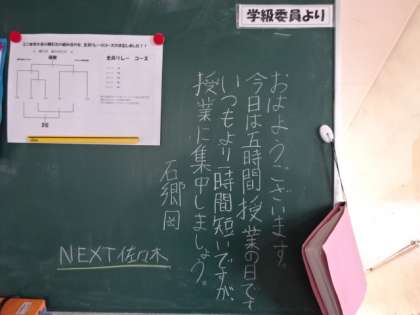 学級委員より
おはようございます。
今日は五時間授業の日です
いつもより一時間短いですが、
授業に集中しましょう。
石郷岡
NEXT佐々木
全員リレー コース